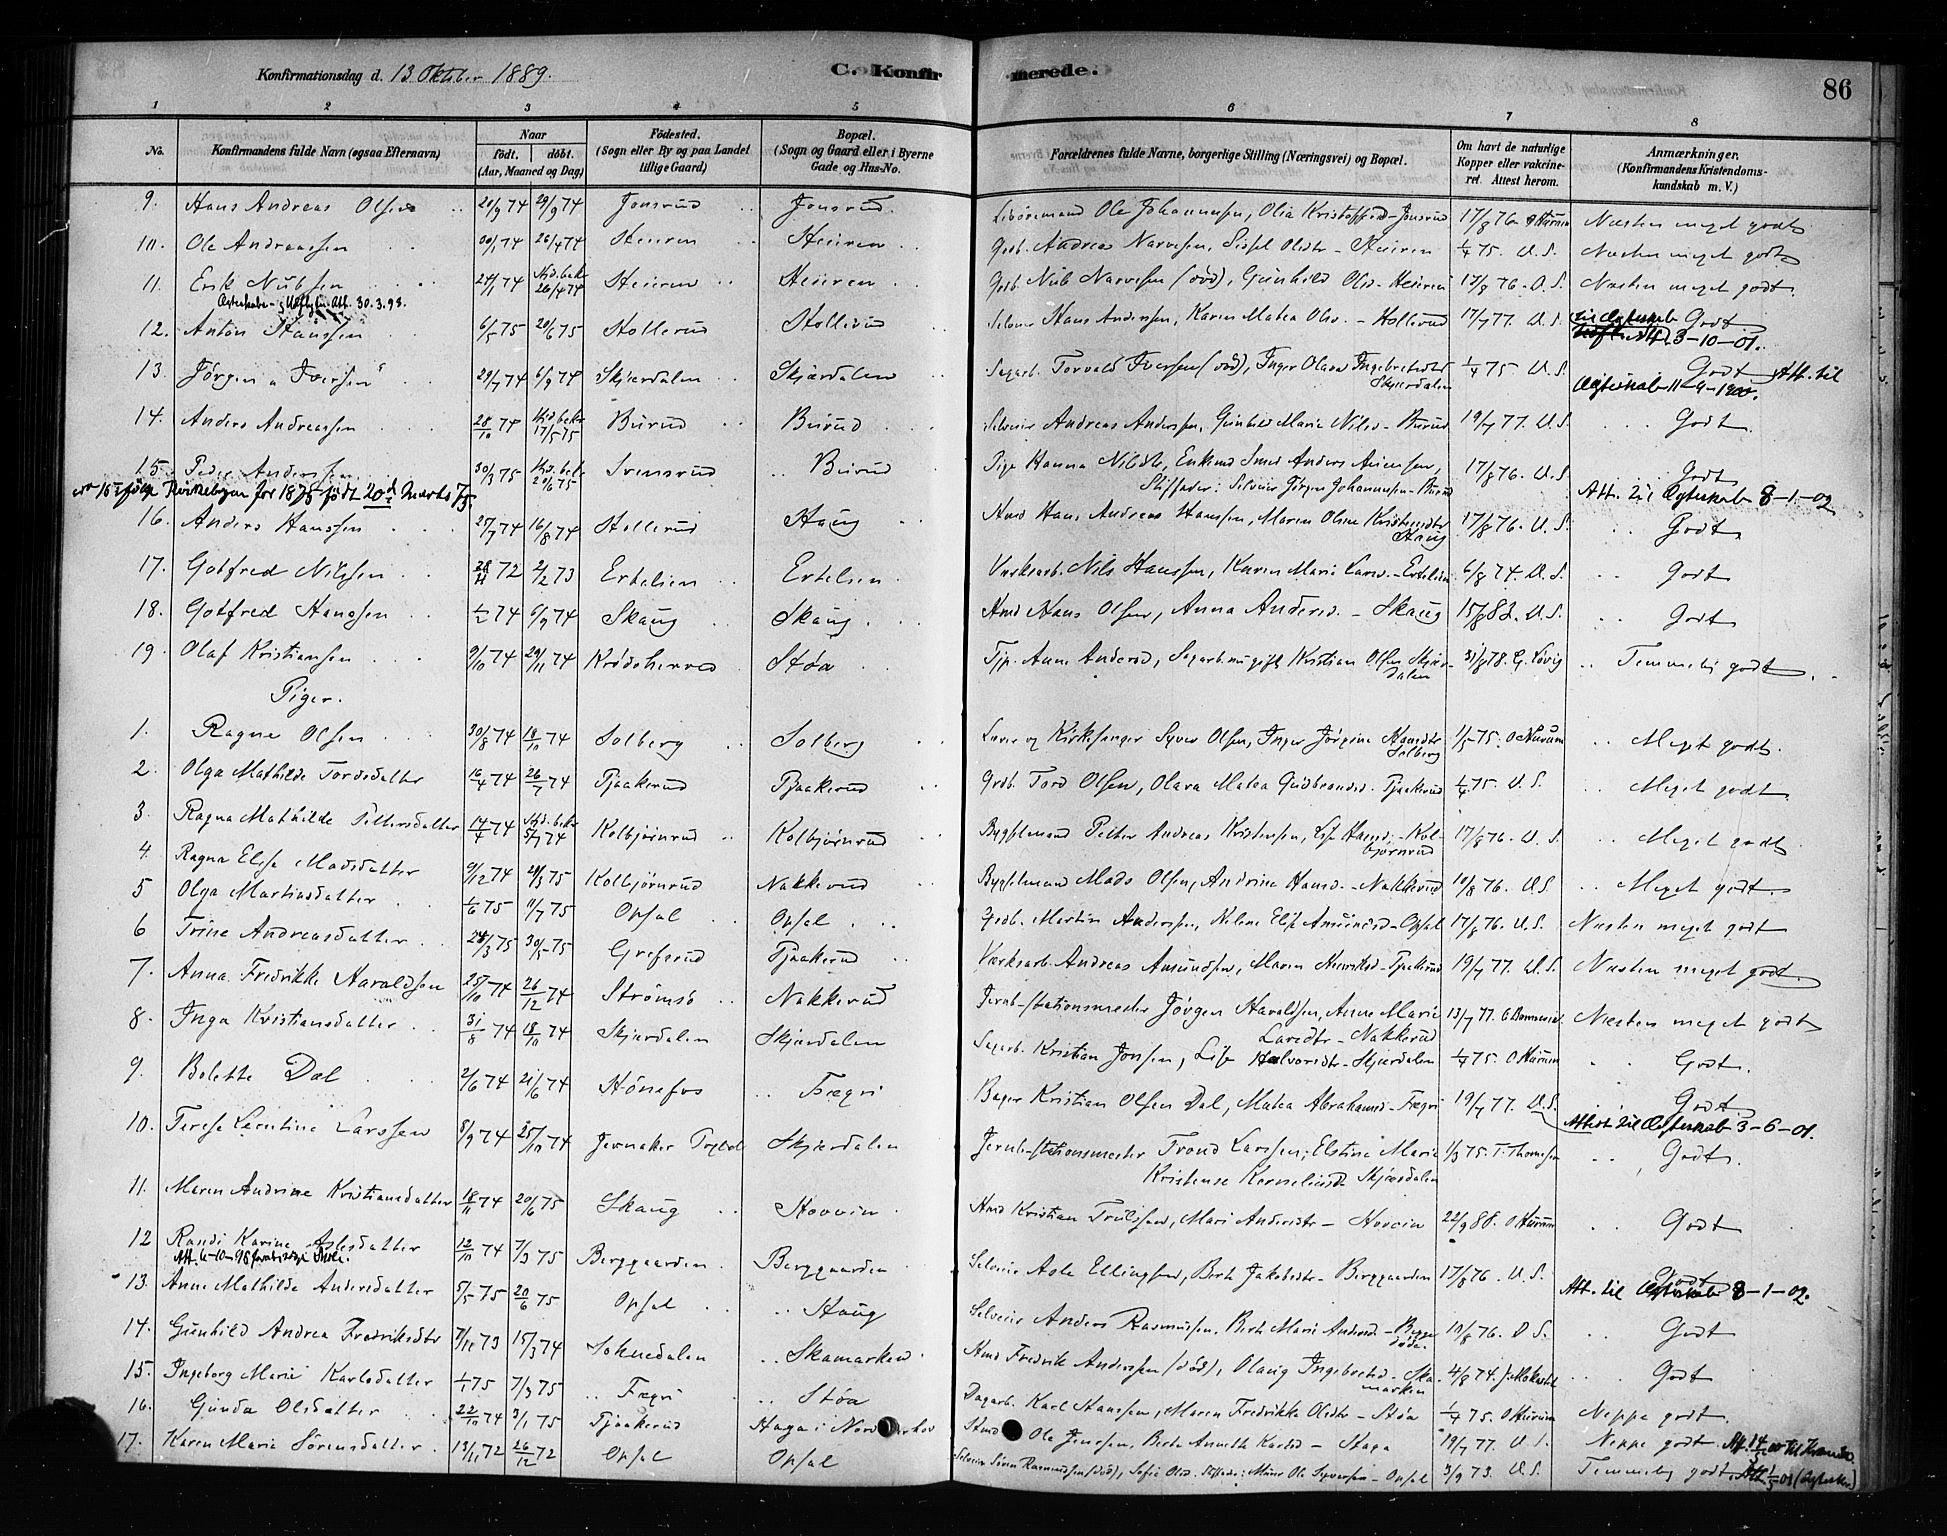 Konfirmationsdag d. 13 Oktober 1889.
C. Konfirmerede.
86
1 2 3 4 5 6 7 8
No. Konfirmandens fulde Navn (ogsaa Efternavn) Naar født. døbt. (Aar, Maaned og Dag) Fødested. (Sogn eller By og paa Landet tillige Gaard) Bopæl. (Sogn og Gaard eller i Byerne Gade og Hus-No. Forældrenes fulde Navne, borgerlige Stilling (Næringsvei) og Bopæl. Om havt de naturlige Kopper eller vakcineret. Attest herom. Anmærkninger. (Konfirmandens Kristendomskundskab m. V.)
9. Hans Andreas Olsen 20/9 74 29/9 74 Jonsrud Jonsrud Ole Johannesen, Olia Jonsrud 17/8 76 Næsten meget godt
10. Ole Andreassen 30/1 74 26/4 74 Heieren Heieren Grdb. Andreas Narvesen, Sissel Olsdtr - Heieren 1/4 75. U.S. Næsten meget godt
11. Erik Nubsen 24/1 74 Kd. bekr 26/4 74 Heieren Heieren Grdb. Nub Narvesen (död), Gunhild Olsd - Heieren 17/8 76. U.S. Næsten meget godt.
30.3.98.
12. Anton Hanssen 6/5 75 20/6 75 Hollerud Hollerud Selveier Hans Anderssen, Karen Matea Olsd. - Hollerud 17/7 77. U.S. Godt
til Ægteskab 3-10-01.
13. Jörgen Iversen 29/7 74 6/9 74 Skjærdalen Skjærdalen Sagarb. Torvald Iversen (död), Inger Olava Ingebretsdtr Skjærdalen 1/4 75 U.S. Godt Att. til
Ægteskab 11-4-1900.
14. Anders Andreassen 28/10 74 Kd. bekr 17/5 75 Burud Burud Selveier Andreas Anderssen, Gunhild Marie Nilsd - Burud 19/7 77. U.S. Godt
15. Peder Anderssen 30/3 75 Kd. bek 20/6 75 Svensrud Burud Pige Hanna Nilsdtr, Enkemd Smed Anders
Stiffader: Selveier Jörgen Johannesen - Burud 17/8 76. U.S. Godt
Kirkebogen for 1875 født 20de Marts 75.
Att. til Ægteskab 8-1-02
16. Anders Hanssen 25/7 74 16/8 74 Hollerud Haug Hmd Hans Andreas Hanssen, Maren Olsen Haug 17/8 76. U.S. Godt
17. Gotfred Nilssen 28/11 72 2/2 73 Ertelien Ertelien Værksarb. Nils Hanssen, Karen Marie Larsd. - Ertelien 6/8 74. U.S. Godt
18. Gotfred Hanssen 1/2 74 6/9 74 Skaug Skaug Hmd Hans Olsen, Anna Andersd. - Skaug 15/8 82. U.S. Godt
19. Olaf Kristiansen 9/10 74 29/11 74 Krødsherred Støa Tjp. Anne Andersd, Sagarb. Kristian Olsen Skjærdalen 31/8 78. G. Lövig Temmelig godt
Piger.
1. Ragna Olsen 30/8 74 18/10 74 Solberg Solberg Lærer og Kirkesanger Syver Olsen, Inger Jörgine Hansdtr Solberg 1/5 75. Meget godt.
2. Olga Mathilde Tordsdatter 16/4 74 26/7 74 Tjaakerud Tjaakerud Grdb. Tord Olsen, Olava Matea Gudbrandsd. Tjaakerud 1/4 75. U.S. Meget godt.
3. Ragna Mathilde Pettersdatter 14/4 74 Kd. bekr 5/7 74 Kolbjörnrud Kolbjörnrud Bygselmand Petter Andreas Kristensen, Lise Hansd, - Kolbjörnrud 17/8 76. U.S. Meget godt
4. Ragna Elise Madsdatter 9/12 74 29/3 75 Kolbjörnrud Nakkerud Bygselmand Mads Olsen, Andrine Hansd. - Nakkerud 10/8 76. U.S. Meget godt
5 Olga Martinsdatter 1/6 75 11/7 75 Opsal Opsal Grdb. Martin Anderssen, Nilene Elise Amundsd - Opsal 17/8 76. U.S. Næsten meget godt
6 Trine Andreasdatter 28/3 75 30/5 75 Grefsrud Tjaakerud Værksarb. Andreas Amundsen, Maren Henriksd - Tjaakerud 19/7 77. U.S. Næsten meget godt
7. Anna Fredrikke Haraldsen 25/10 74 26/12 74 Strömsö Nakkerud Jernb-stationsmester Jörgen Haraldsen, Anne Marie Larsdtr - Nakkerud 13/7 77. Næsten meget godt
8. Inga Kristiansdatter 31/8 74 18/10 74 Skjærdalen Skjærdalen Sagarb. Kristian Jonsen, Lise Halvorsdtr - Skjærdalen 1/4 75. Godt.
9. Bolette Dal 2/6 74 21/6 74 Hönefos Fægri Bager Kristian Olsen Dal, Matea Abrahamsd - Fægri 19/7 77. U.S. Godt
Attest til Ægteskab 3-6-01.
10. Terese Leontine Larssen 8/9 74 25/10 74 Jevnaker Skjærdalen Jernb-stationsmester Trond Larssen, Elstina Marie
Kristense Korneliusd Skjærdalen 1/3 75. T. Godt.
11. Maren Andrine Kristiansdatter 18/11 74 20/6 75 Skaug Hovvin Hmd Kristian Trulssen, Mari Andersdtr - Hovvin 22/9 88. Godt
12 Randi Karine Aslesdatter 12/10 74 7/3 75 Berggaarden Berggaarden Selveier Asle Ellingsen, Berte Jakobsdtr - Berggaarden 17/8 76. U.S. Godt
13. Anne Mathilde Andersdatter 5/5 75 20/6 75 Opsal Haug Selveier Anders Rasmussen, Berte Marie Andersd 10/8 76. U.S. Godt
Att. til Ægteskab 8-1-02.
14. Gunhild Andrea Fredriksdtr 7/12 73 15/3 74 Soknedalen Skamarken Hmd Fredrik Anderssen (död), Olaug Ingebretsd - Skamarken 4/8 74. Godt
15. Ingeborg Marie Karlsdatter 1/1 75 7/3 75 Fægri Støa Dagarb. Karl Hanssen, Maren Fredrikke Olsdtr - Støa 1/4 75. Neppe godt.
16. Gunda Olsdatter 22/11 74 3/1 75 Tjaakerud Haga i Norderhov Hmd Ole Jenssen, Berte Annette Karlsd - Haga 19/7 77. U.S. Neppe godt.
17. Karen Marie Sörensdatter 13/11 72 26/12 72 Opsal Opsal Selveier Sören Rasmussen (död), Sofie Olsd. Stiffader: Ole Syversen - Opsal 3/9 73. U.S. Temmelig godt.